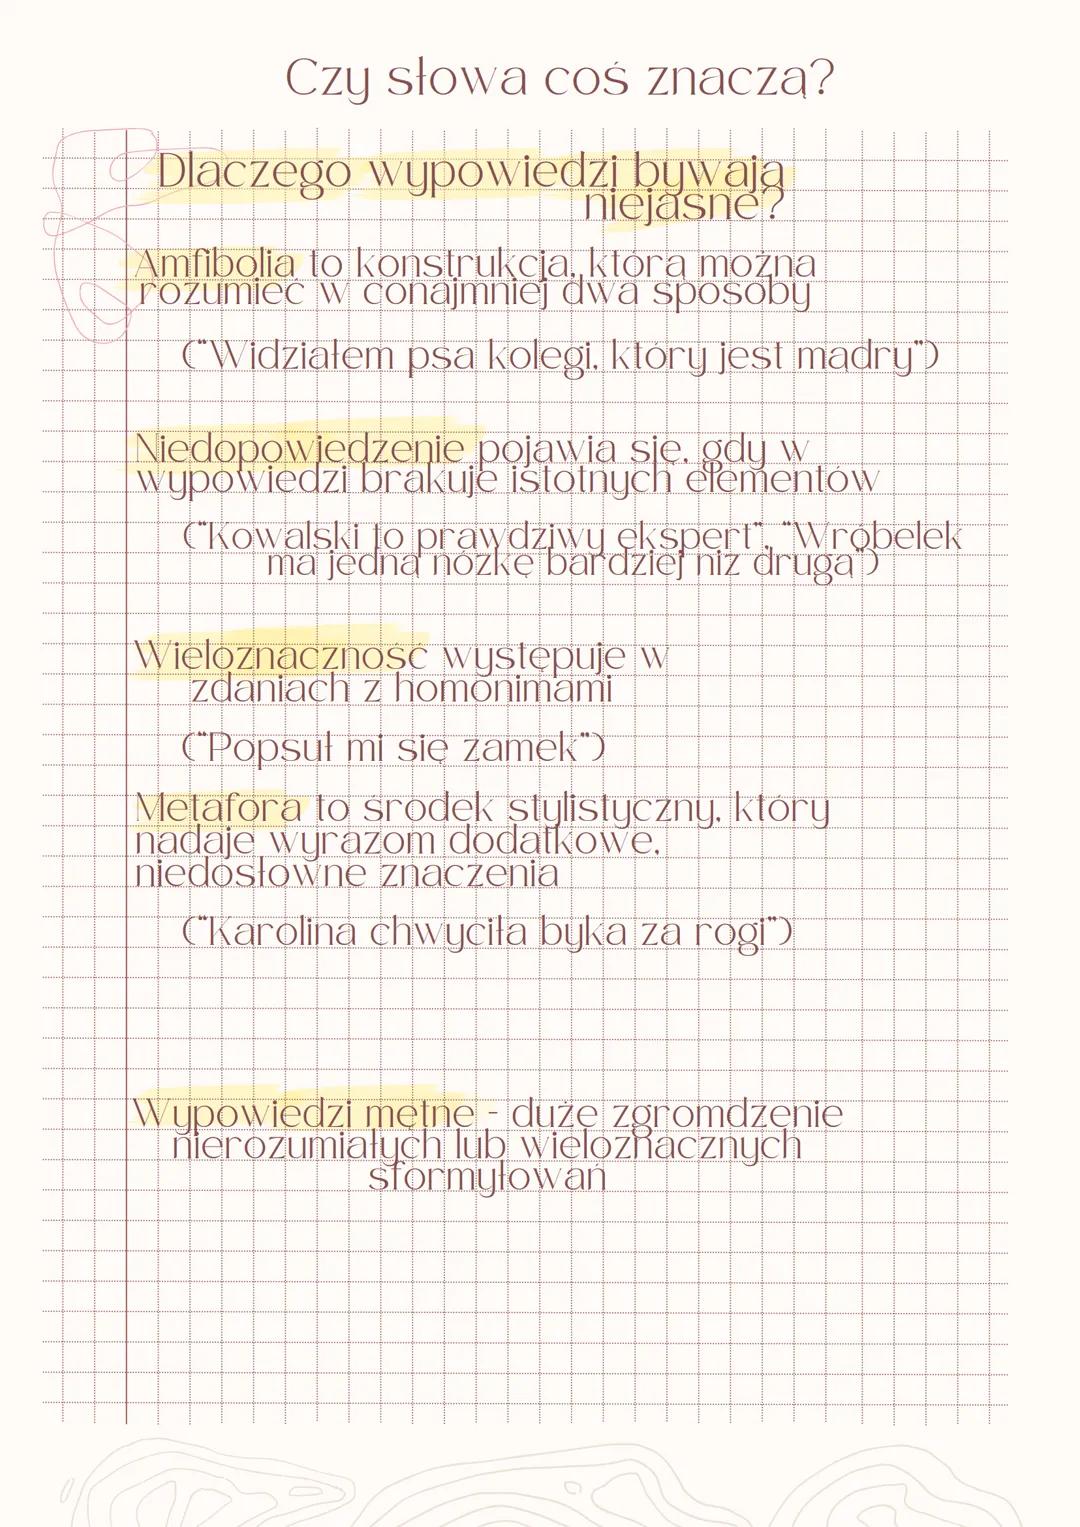 Czy słowa coś znaczą?
Dlaczego wypowiedzi bywają
niejasne?
Amfibolia to konstrukcja, którą można
rozumieć w conajmniej dwa sposoby
("Widziałem psa kolegi, który jest mądry")
Niedopowiedzenie pojawia się, gdy w
wypowiedzi brakuje istotnych elementów
("Kowalski to prawdziwy ekspert", "Wróbelek
ma jedną nóżkę bardziej niż drugą")
Wieloznaczność występuje w
zdaniach z homonimami
("Popsuł mi się zamek")
Metafora to środek stylistyczny, który
nadaje wyrazom dodatkowe,
niedosłowne znaczenia
("Karolina chwyciła byka za rogi")
Wypowiedzi mętne - duże zgromdzenie
nierozumiałych lub wieloznacznych
sformyłowań